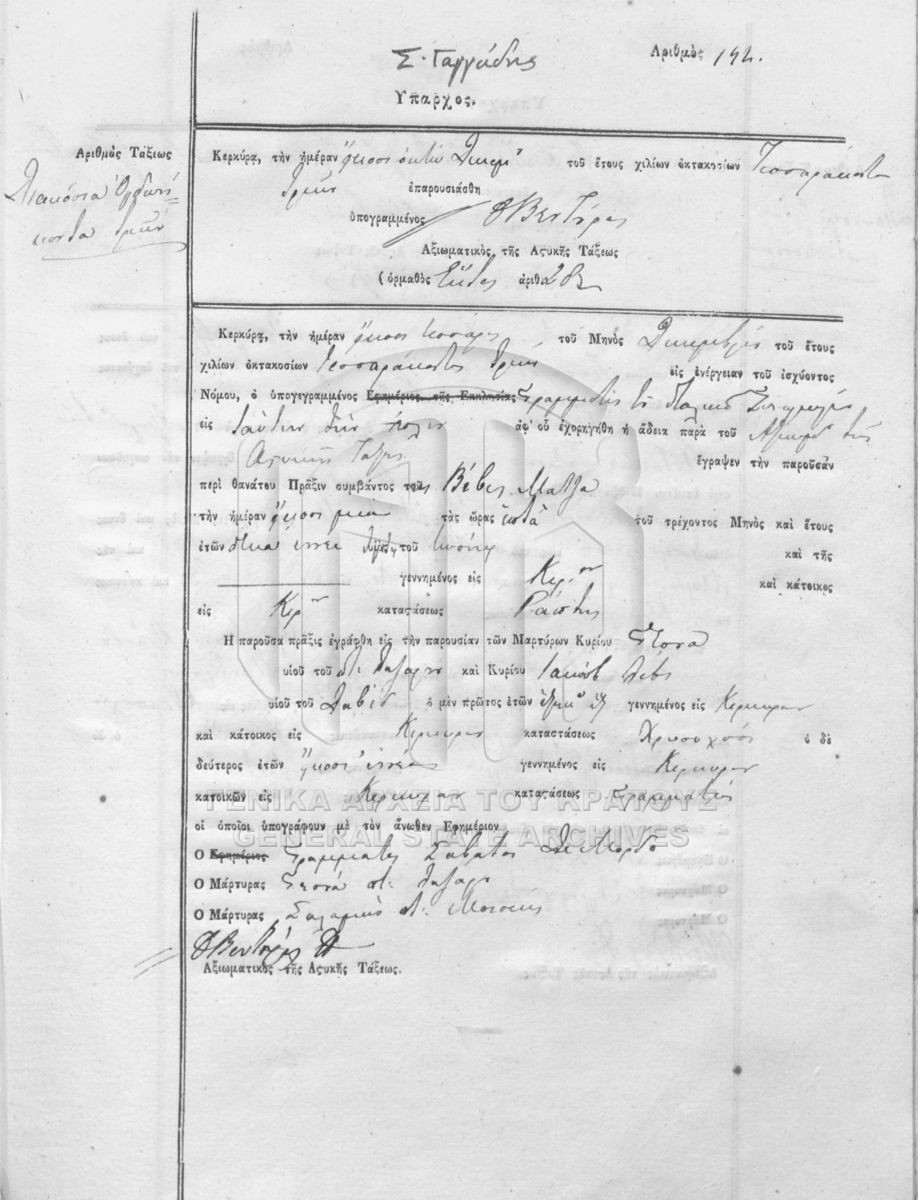 Σ. Γαγγάδης Ἀριθμὸς 142.
Ὕπαρχος.
Ἀριθμὸς Τάξεως
Διακόσια Ὀγδοή=
κοντα τρία
Κερκύρᾳ, τὴν ἡμέραν εἴκοσι ὀκτὼ Δικεμ. τοῦ ἔτους χιλίων ὀκτακοσίων τεσσαράκοντα
τρία ἐπαρουσιάσθη
ὑπογραμμένος
Ἀξιωματικὸς τῆς Ἀςυκῆς Τάξεως
(ὁρμαθὸς ἀριθ.
Κερκύρᾳ, τὴν ἡμέραν εἴκοσι τέσσαρες τοῦ Μηνὸς Δικεμβρίου τοῦ ἔτους
χιλίων ὀκτακοσίων τεσσαράκοντα τρία εἰς ἐνέργειαν τοῦ ἰσχύοντος
Νόμου, ὁ ὑπογεγραμμένος Ἐφημέριος τῆς Ἐκκλησίας Γραμματεὺς
εἰς ταύτην τὴν πόλιν ἀφ' οὗ ἐχορηγήθη ἡ ἄδεια παρὰ τοῦ Ἀξιωμ. τῆς
Ἀςυκῆς Τάξεως ἔγραψεν τὴν παροῦσαν
περὶ θανάτου Πρᾶξιν συμβάντος τῆς Βέβας Μάτζα
τὴν ἡμέραν εἴκοσι μία τὰς ὥρας ἑπτὰ τοῦ τρέχοντος Μηνὸς καὶ ἔτους
ἐτῶν δέκα ἐννέα τοῦ καὶ τῆς
γεννημένος εἰς Κερ.ν καὶ κάτοικος
εἰς Κερ.ν καταςάσεως Ράπτης
Ἡ παροῦσα πρᾶξις ἐγράφθη εἰς τὴν παρουσίαν τῶν Μαρτύρων Κυρίου
υἱοῦ τοῦ καὶ Κυρίου Ἰακὼβ Λέβι
υἱοῦ τοῦ Δαβὶδ ὁ μὲν πρῶτος ἐτῶν ἑξῆκ. ἓξ γεννημένος εἰς Κέρκυραν
καὶ κάτοικος εἰς Κέρκυραν καταστάσεως Χρυσοχοὸς ὁ δὲ
δεύτερος ἐτῶν εἴκοσι ἐννέα γεννημένος εἰς Κέρκυραν
κατοικῶν εἰς Κέρκυραν καταςάσεως
οἱ ὁποῖοι ὑπογράφουν μὲ τὸν ἄνωθεν Ἐφημέριον
Ὁ Ἐφημέριος Γραμματεὺς Σαβατος Δε Μορδο
Ὁ Μάρτυρας
Ὁ Μάρτυρας
Ἀξιωματικὸς τῆς Ἀςυκῆς Τάξεως.
ΓΕΝΙΚΑ ΑΡΧΕΙΑ ΤΟΥ ΚΡΑΤΟΥΣ
GENERAL STATE ARCHIVES